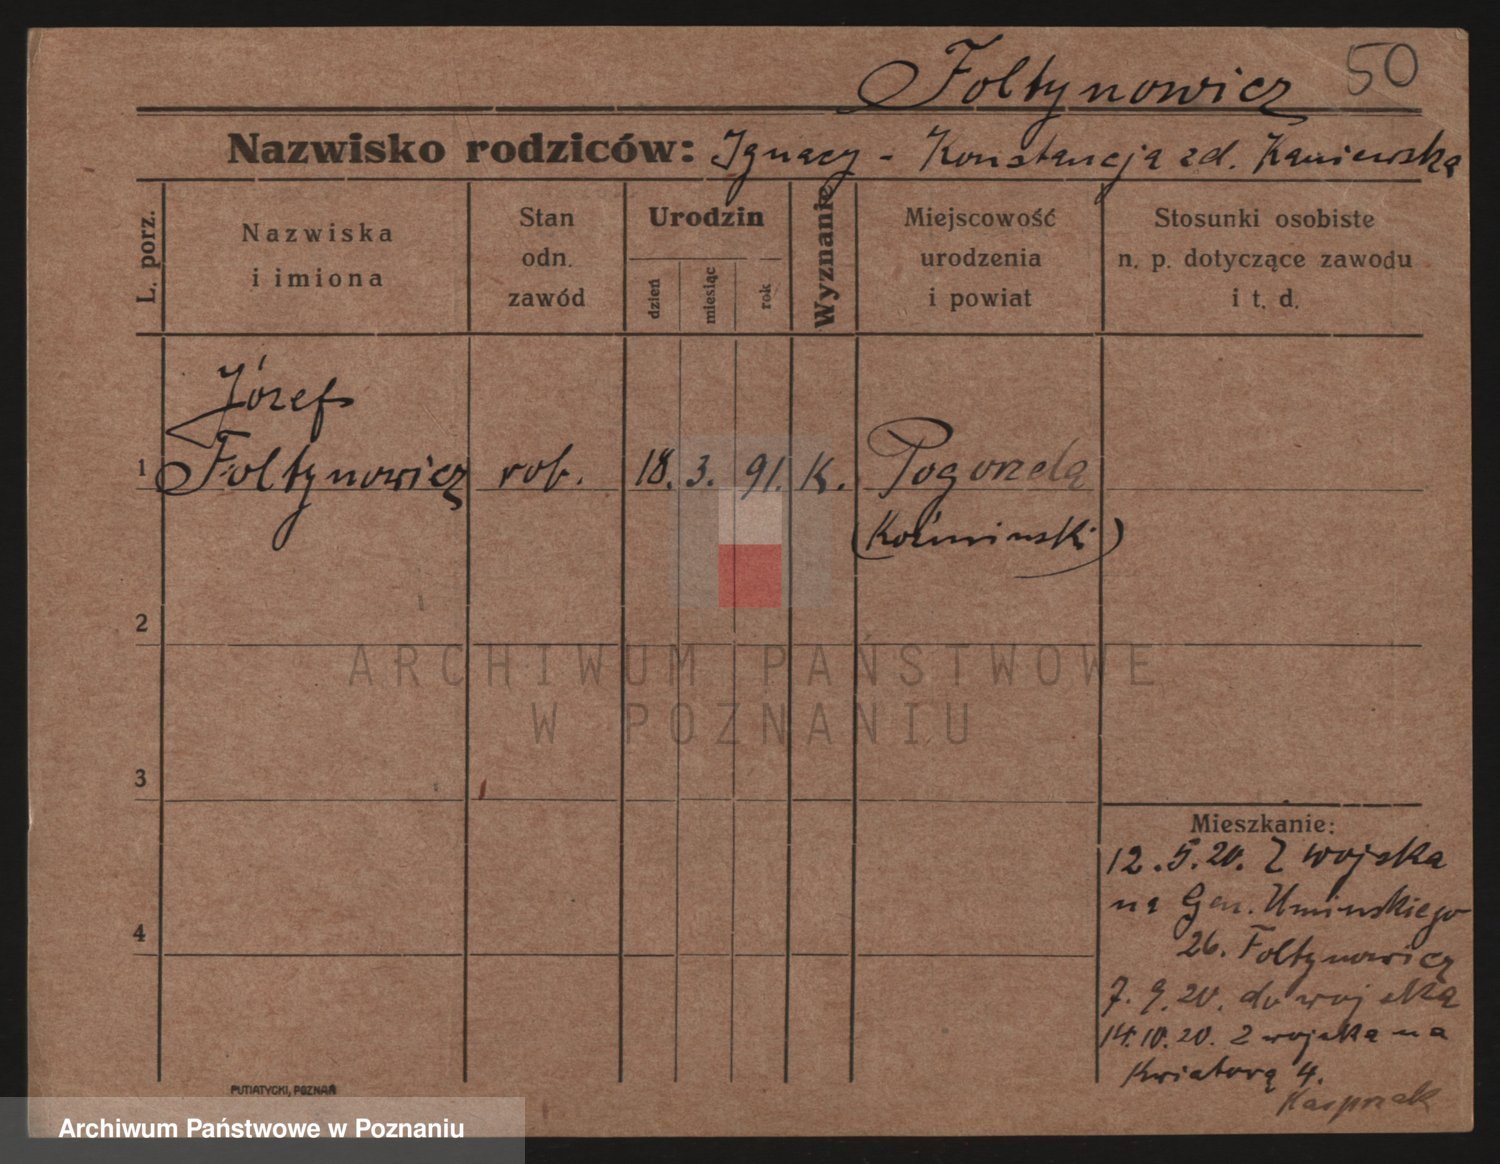 Foltynowicz 50
Nazwisko rodziców: Ignacy - Konstancja zd. Kaniewska
L. porz.
Nazwiska
i imiona
Stan
odn.
zawód
Urodzin
dzień
miesiąc
rok
Wyznanie
Miejscowość
urodzenia
i powiat
Stosunki osobiste
n. p. dotyczące zawodu
i t. d.
Józef
1 Foltynowicz rob. 18. 3. 91. K. Pogorzelą
(Koźminski)
2
ARCHIWUM PAŃSTWOWE
W POZNANIU
3
Mieszkanie:
12.5.20. Z wojska
na Gen. Uminskiego
26. Foltynowicz
4
7.9.20. do wojska
14.10.20. Z wojska na
Kwiatową 4.
Kasprzak
PUTIATYCKI, POZNAŃ
Archiwum Państwowe w Poznaniu